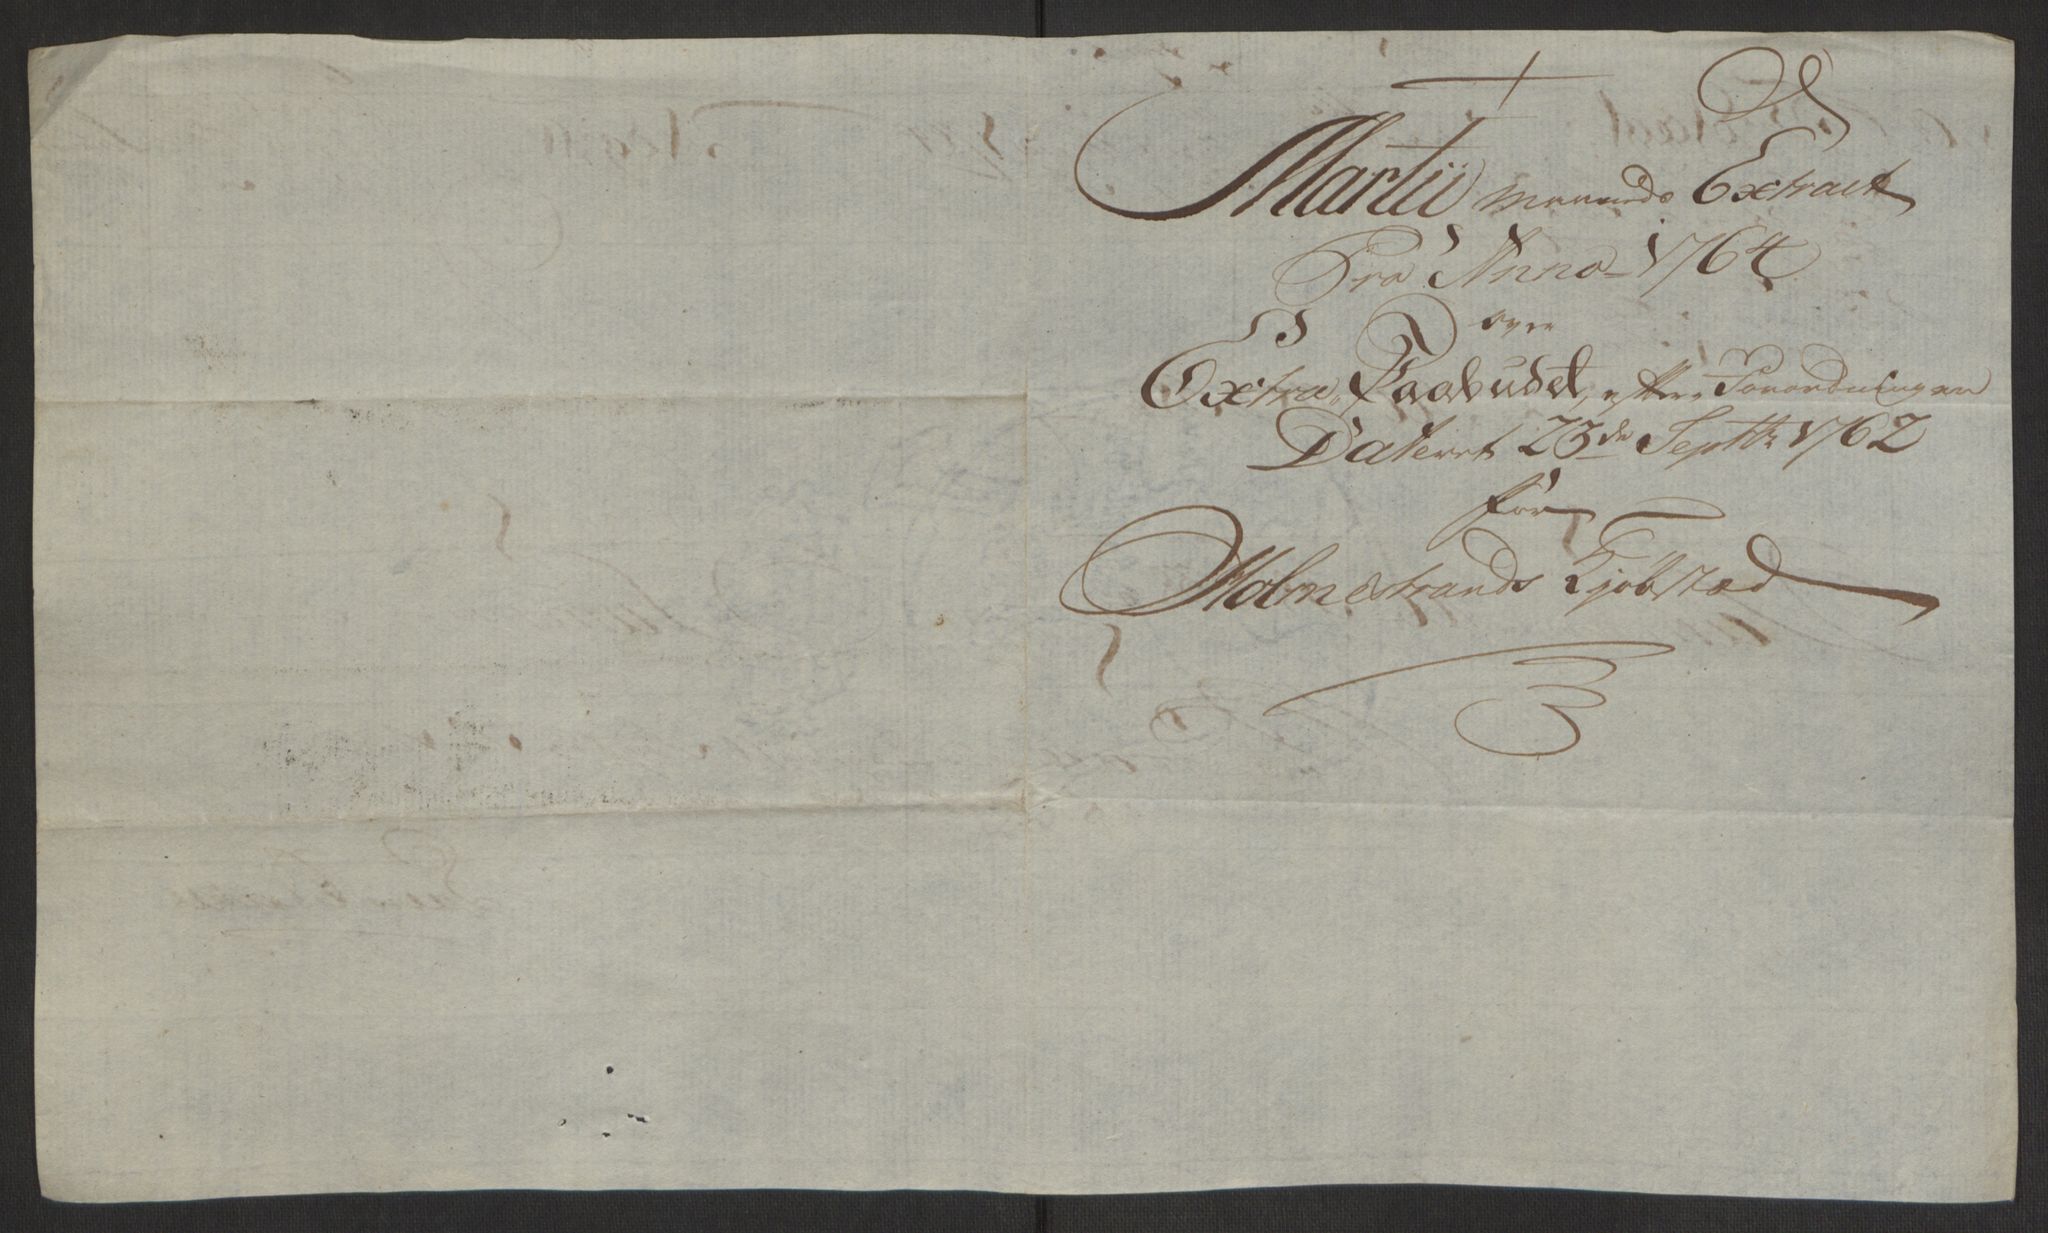 Martii maaneds Extract
Pro Anno 1764
over
Extra Paabudet, efter Forordningen
Dateret 23de Septbr 1762
for
Holmestrands Kjøbstæd